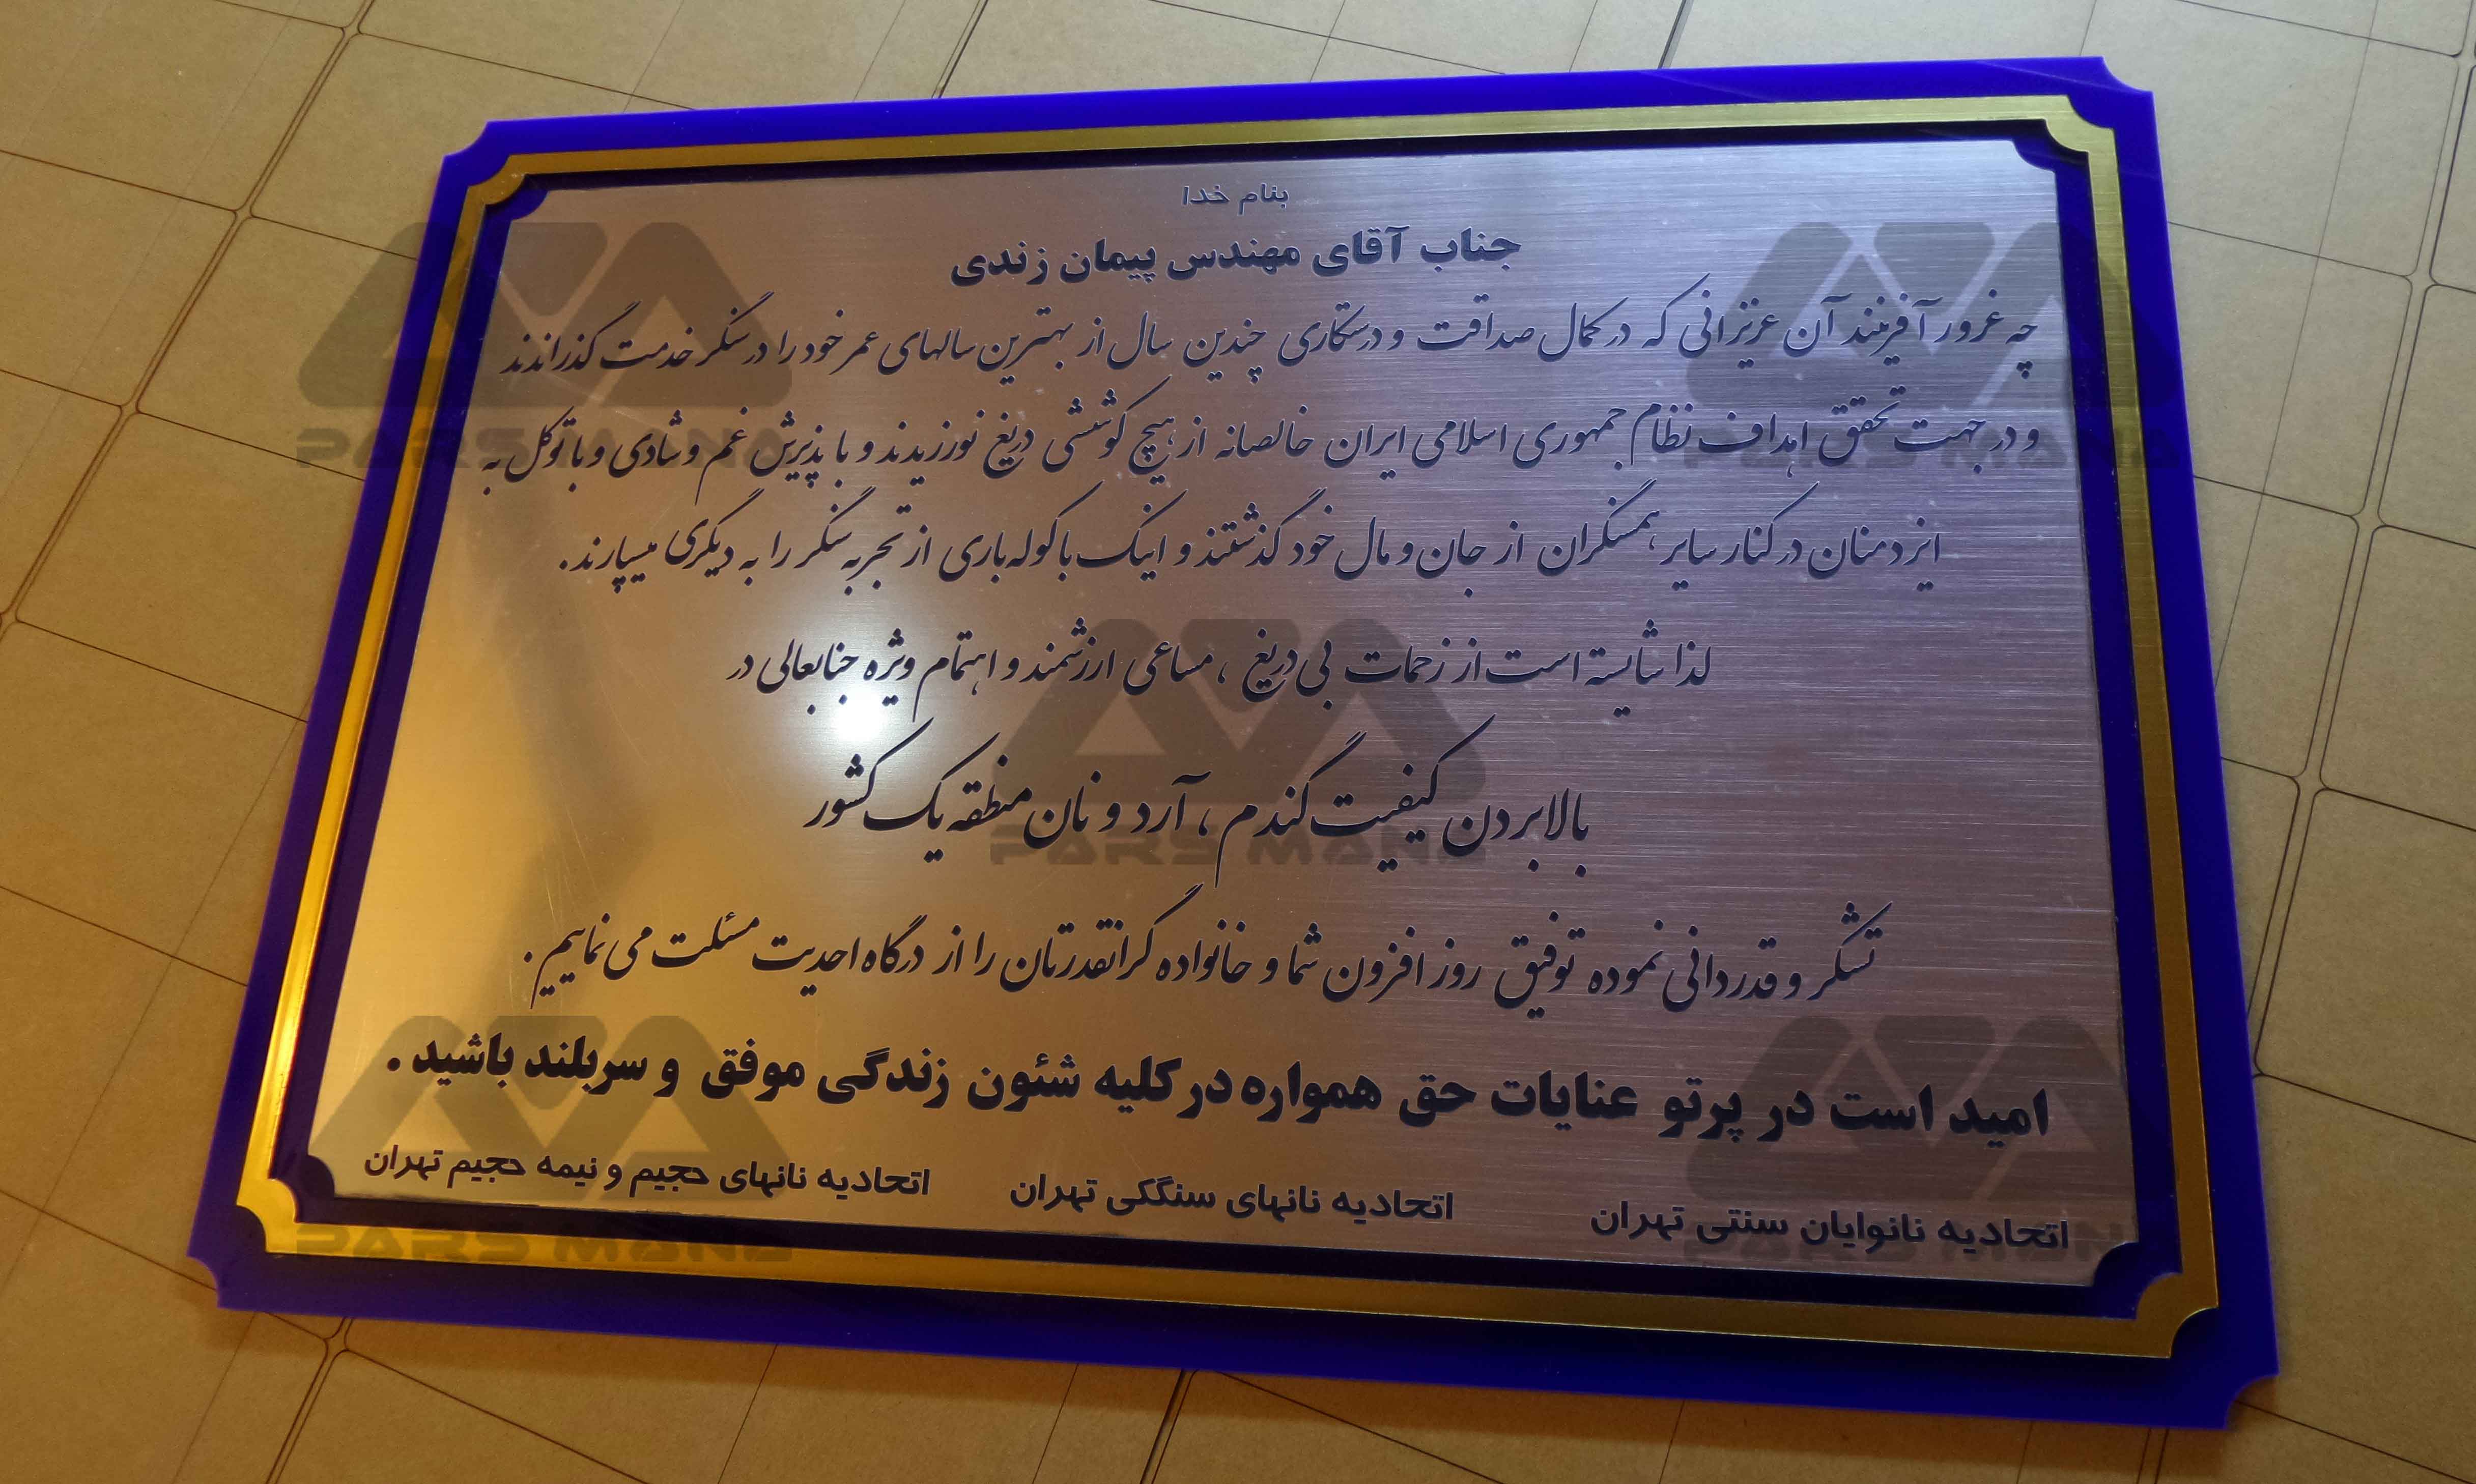 بنام خدا
جناب آقای مهندس پیمان زندی
چه غرور آفرینند آن عزیزانی که در کمال صداقت و درستکاری چندین سال از بهترین سالهای عمر خود را در سنگر خدمت گذراندند
و در جهت تحقق اهداف نظام جمهوری اسلامی ایران خالصانه از هیچ کوششی دریغ نورزیدند و با پذیرش غم و شادی و با توکل به
ایزد منان در کنار سایر همسنگران از جان و مال خود گذشتند و اینک با کوله باری از تجربه سنگر را به دیگری میسپارند.
لذا شایسته است از زحمات بی دریغ ، مساعی ارزشمند و اهتمام ویژه جنابعالی در
بالا بردن کیفیت گندم ، آرد و نان منطقه یک کشور
تشکر و قدردانی نموده توفیق روز افزون شما و خانواده گرانقدرتان را از درگاه احدیت مسئلت می نماییم .
امید است در پرتو عنایات حق همواره در کلیه شئون زندگی موفق و سربلند باشید .
اتحادیه نانوایان سنتی تهران اتحادیه نانهای سنگکی تهران اتحادیه نانهای حجیم و نیمه حجیم تهران
PARS MANA
PARS MANA
PARS MANA
PARS MANA
PARS MANA